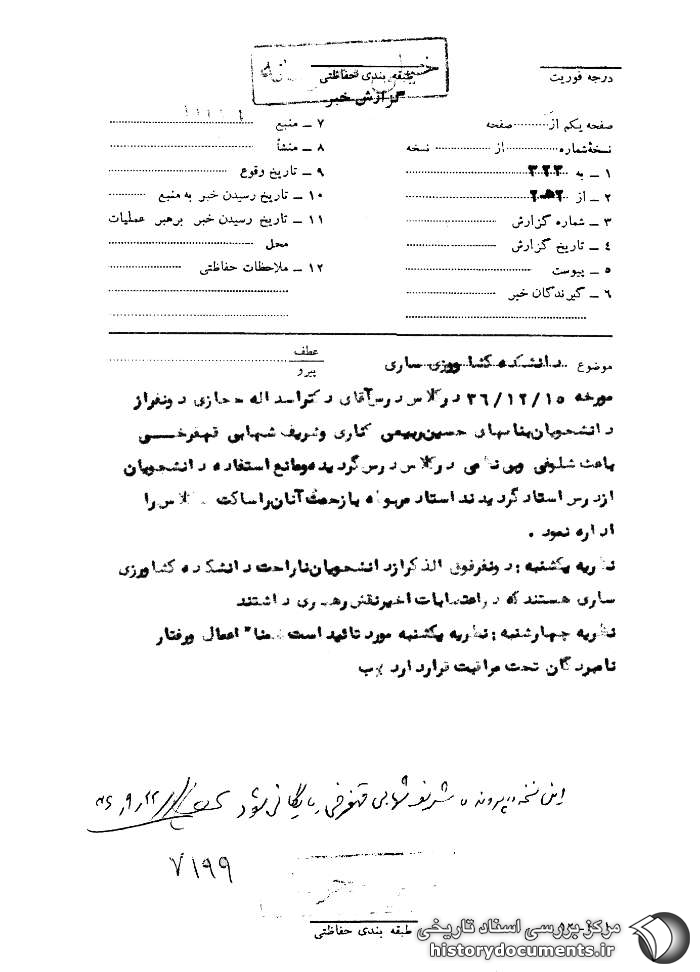 درجه فوریت
طبقه بندی حفاظتی
گزارش خبر
صفحه یکم از صفحه
نسخهٔ شماره از نسخه
۱ ـ به ۳۲۳
۲ ـ از
۳ ـ شماره گزارش
۴ ـ تاریخ گزارش
۵ ـ پیوست
۶ ـ گیرندگان خبر
۷ ـ منبع
۸ ـ منشأ
۹ ـ تاریخ وقوع
۱۰ ـ تاریخ رسیدن خبر به منبع
۱۱ ـ تاریخ رسیدن خبر برهبر عملیات
محل
۱۲ ـ ملاحظات حفاظتی
موضوع دانشکده کشاورزی ساری
عطف
پیرو
مورخه ۳۶/۱۲/۱۵ در کلاس درس آقای دکتر اسداله حجازی دونفر از
دانشجویان بنامهای حسین ربیعی کناری و شریف شهابی قهفرخی
باعث شلوغی وبی نظمی در کلاس درس گردیده ومانع استفاده دانشجویان
از درس استاد گردیدند استاد مربوطه با زحمت آنان را ساکت کلاس را
اداره نمود .
نظریه یکشنبه : دونفر فوق الذکر از دانشجویان ناراحت دانشکده کشاورزی
ساری هستند که در اعتصابات اخیر نقش رهبری داشتند
نظریه چهارشنبه : نظریه یکشنبه مورد تائید است ضمنا" اعمال ورفتار
نامبردگان تحت مراقبت قرار دارد
این نسخه در پرونده شریف شهابی قهفرخی بایگانی شود
۷۱۹۹
طبقه بندی حفاظتی
مرکز بررسی اسناد تاریخی
historydocuments.ir